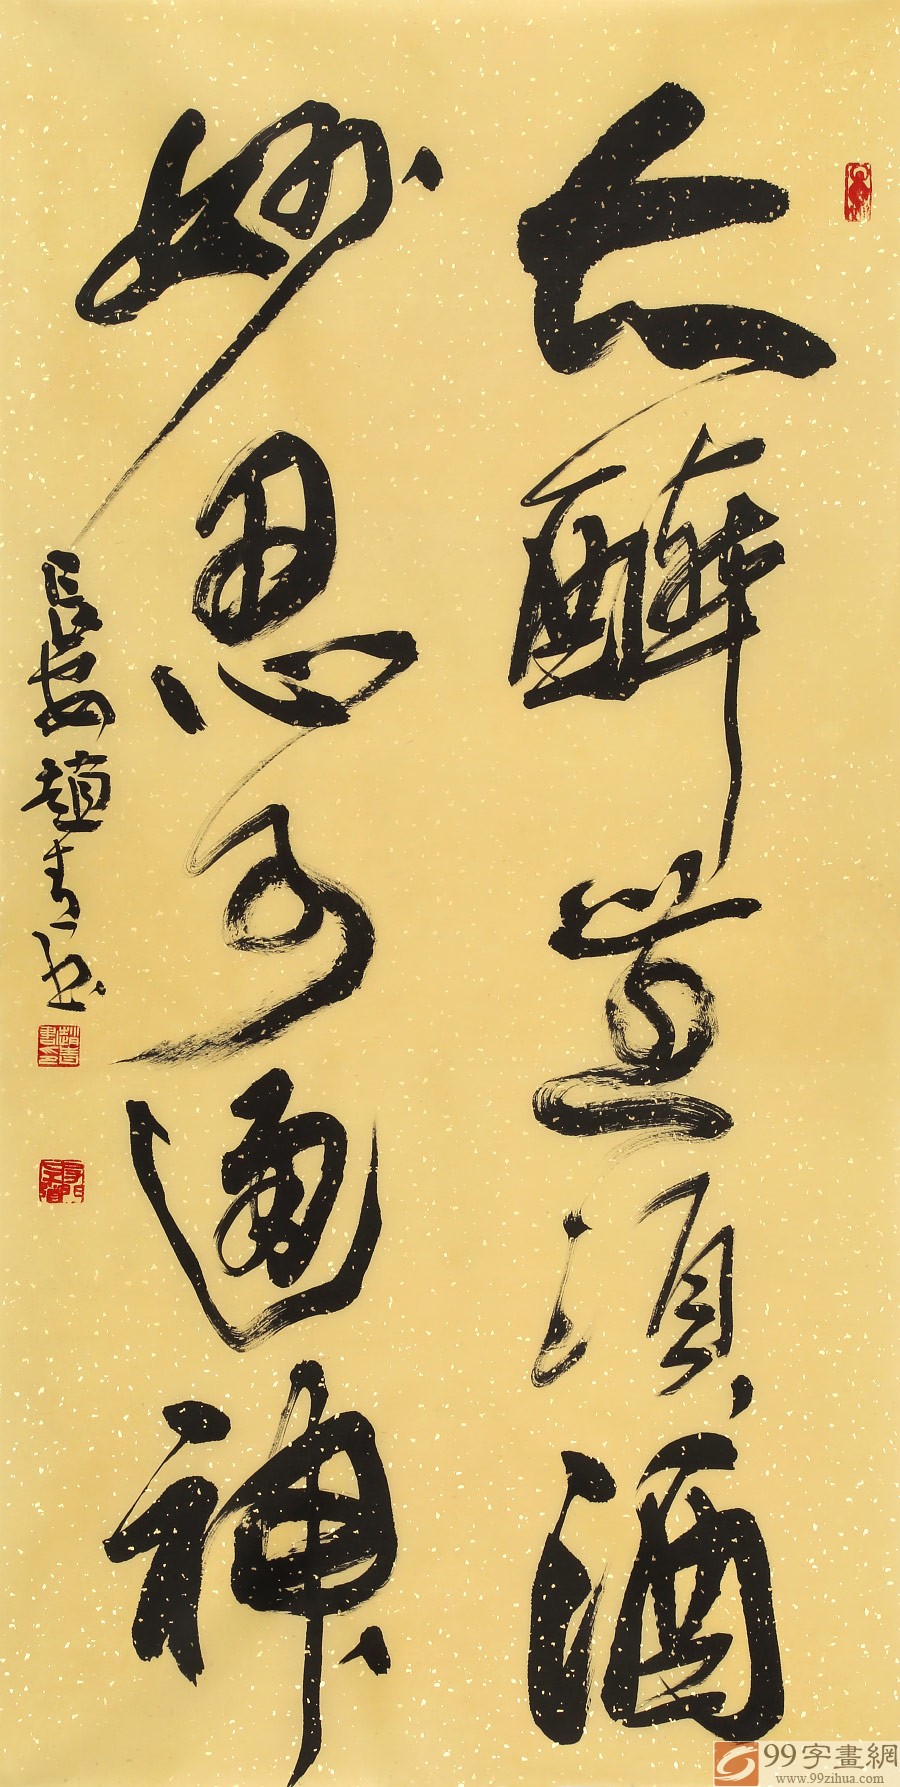 大醉豈須酒
妙思可通神
長安趙青書
99字畫網
www.99zihua.com